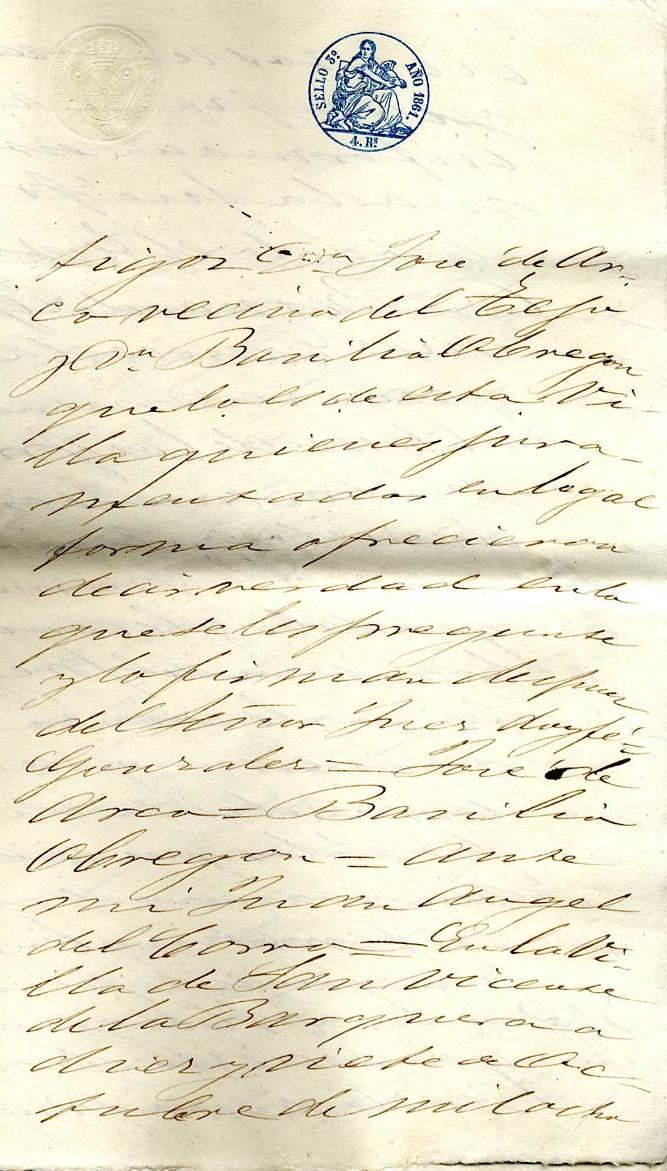 SELLO 3º AÑO 1861.
4. Rs
tigos Don Jose de Ar-
co vecino del Tejo
y Dn Basilio Obregon
que lo es de esta Vi-
lla quienes jura-
mentados en legal
forma ofrecieron
decir verdad en lo
que se les pregunte
y lo firman despues
del Señor Juez doy fé=
Gonzalez = Jose de
Arco = Basilio
Obregon = ante
mi Juan Angel
del Corro = En la Vi-
lla de San Vicente
de la Barquera a
diez y siete de Oc-
tubre de mil ocho